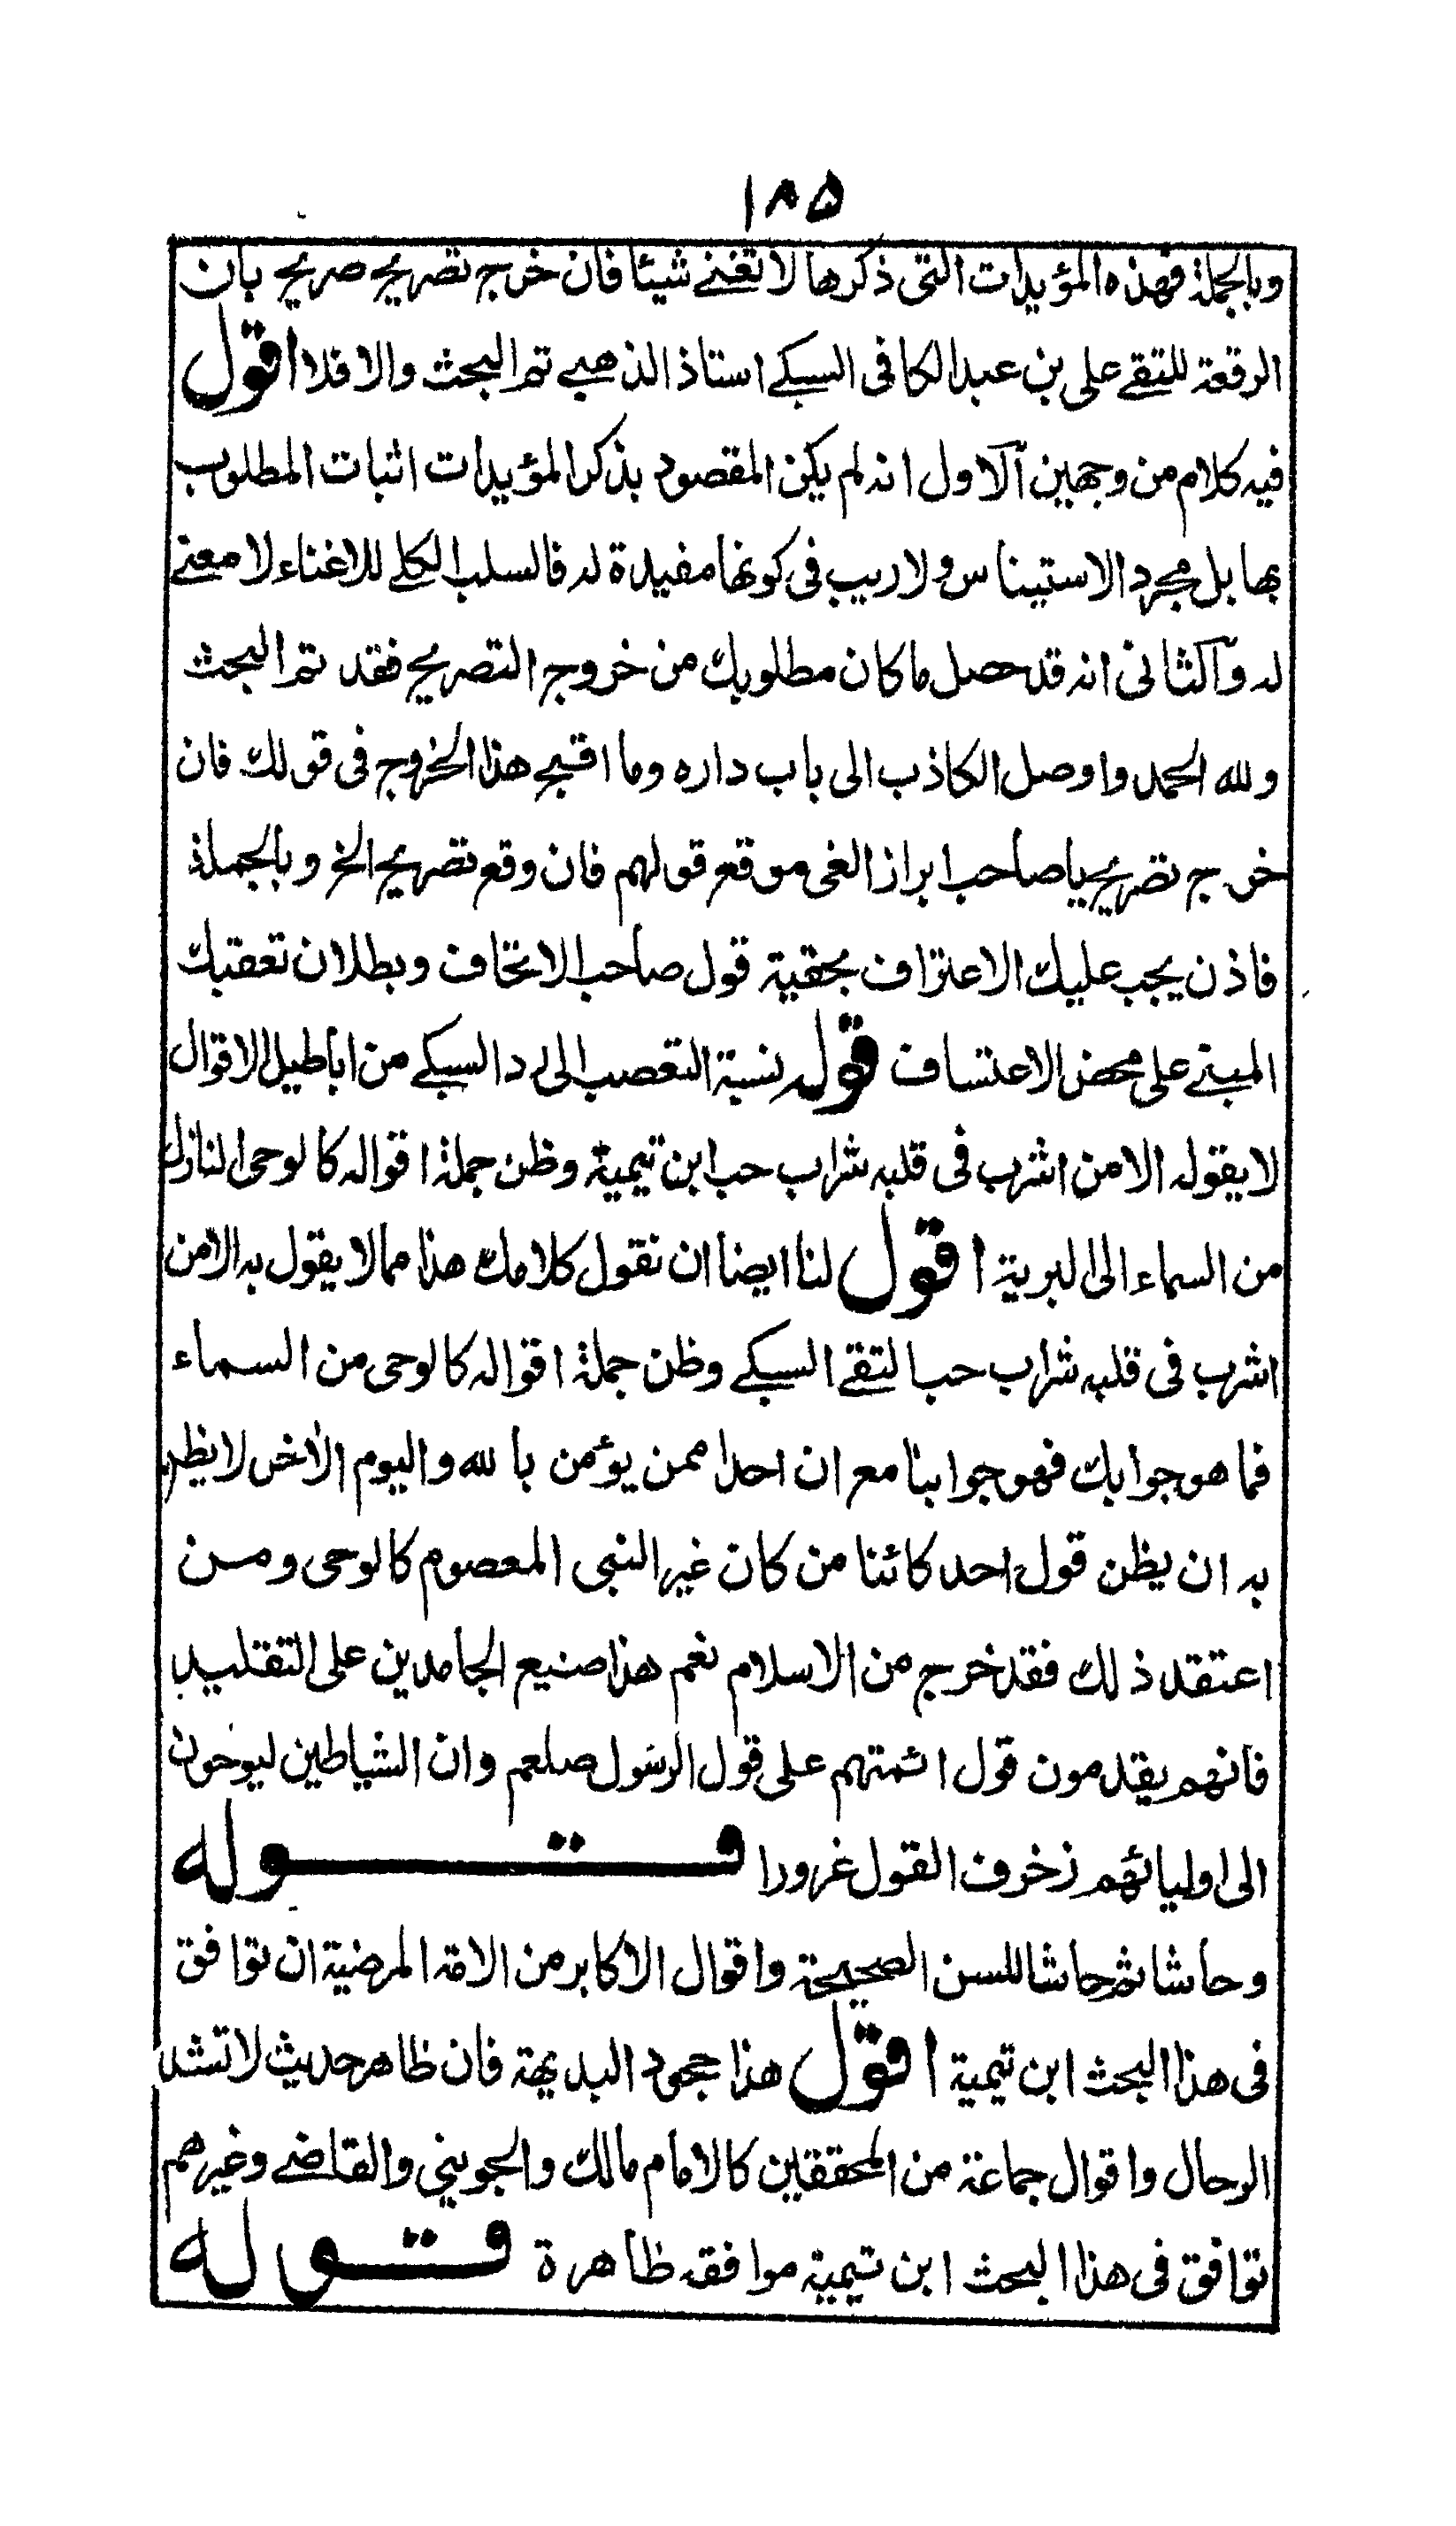 ١٨٥
وبالجملة فهذه المؤيدات التى ذكرها لا تغنے شيئا فان خرج تصريح صريح بان
الرقعة للتقے على بن عبد الكافى السبكے استاذ الذهبے تم البحث والا فلا اقول
فيه كلام من وجهين آلاول انه لم يكن المقصود بذكر المؤيدات اثبات المطلوب
بها بل مجرد الاستيناس ولا ريب فى كونها مفيدة له فالسلب الكلے للاغناء لا معنے
له وآلثانى انه قد حصل ما كان مطلوبك من خروج التصريح فقد تم البحث
ولله الحمد واوصل الكاذب الى باب داره وما اقبح هذا الخروج فى قولك فان
خرج تصريح يا صاحب ابراز الغى موقع قولهم فان وقع تصريح الخ وبالجملة
فاذن يجب عليك الاعتراف بحقية قول صاحب الاتحاف وبطلان تعقبك
المبنے على محض الاعتساف قوله نسبة التعصب الى رد السبكے من اباطيل الاقوال
لا يقوله الا من اشرب فى قلبه شراب حب ابن تيمية وظن جملة اقواله كالوحى النازل
من السماء الى البرية اقول لنا ايضا ان نقول كلامك هذا مما لا يقول به الا من
اشرب فى قلبه شراب حب التقے السبكے وظن جملة اقواله كالوحى من السماء
فما هو جوابك فهو جوابنا مع ان احدا ممن يؤمن بالله واليوم الاخر لا يظن
به ان يظن قول احد كائنا من كان غير النبى المعصوم كالوحى ومن
اعتقد ذلك فقد خرج من الاسلام نعم هذا صنيع الجامدين على التقليد
فانهم يقدمون قول ائمتهم على قول الرسول صلعم وان الشياطين ليوحون
الى اوليائهم زخرف القول غرورا قوله
وحاشا ثم حاشا للسنن الصحيحة واقوال الاكابر من الامة المرضية ان توافق
فى هذا البحث ابن تيمية اقول هذا جحود البديهة فان ظاهر حديث لا تشد
الرحال واقوال جماعة من المحققين كالامام مالك والجويني والقاضے وغيرهم
توافق فى هذا البحث ابن تيمية موافقه ظاهرة قوله